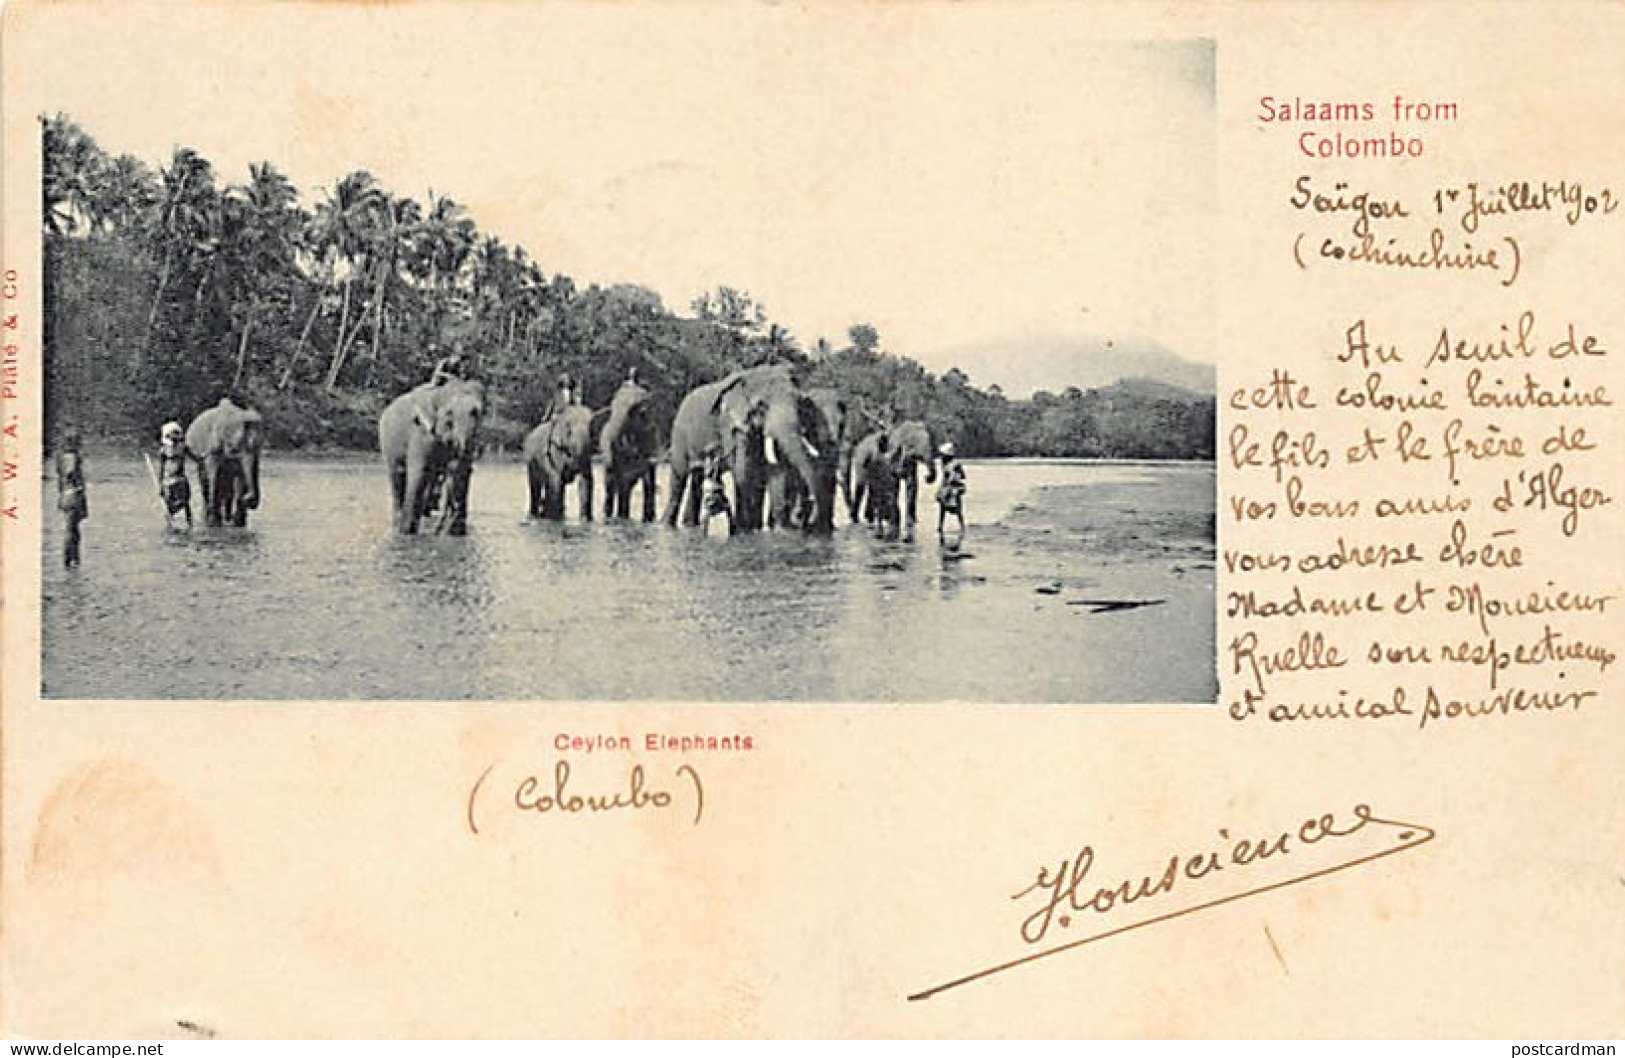 Salaams from
Colombo
Saïgon 1r Juillet 1902
(Cochinchine)
Au seuil de
cette colonie lointaine
le fils et le frère de
vos bons amis d'Alger
vous adresse chère
Madame et Monsieur
Ruelle son respectueux
et amical souvenir
A. W. A. Platé & Co
Ceylon Elephants.
(Colombo)
www.delcampe.net
postcardman